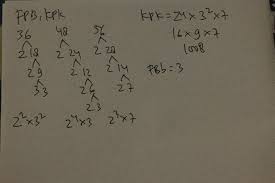 FPB, KPK
36 48 56
2 18 2 24 2 28
2 9 2 12 2 14
3 3 2 6 2 7
2 3
2² × 3² 2⁴ × 3 2³ × 7
KPK = 24 × 3² × 7
16 × 9 × 7
1008
FBb = 3